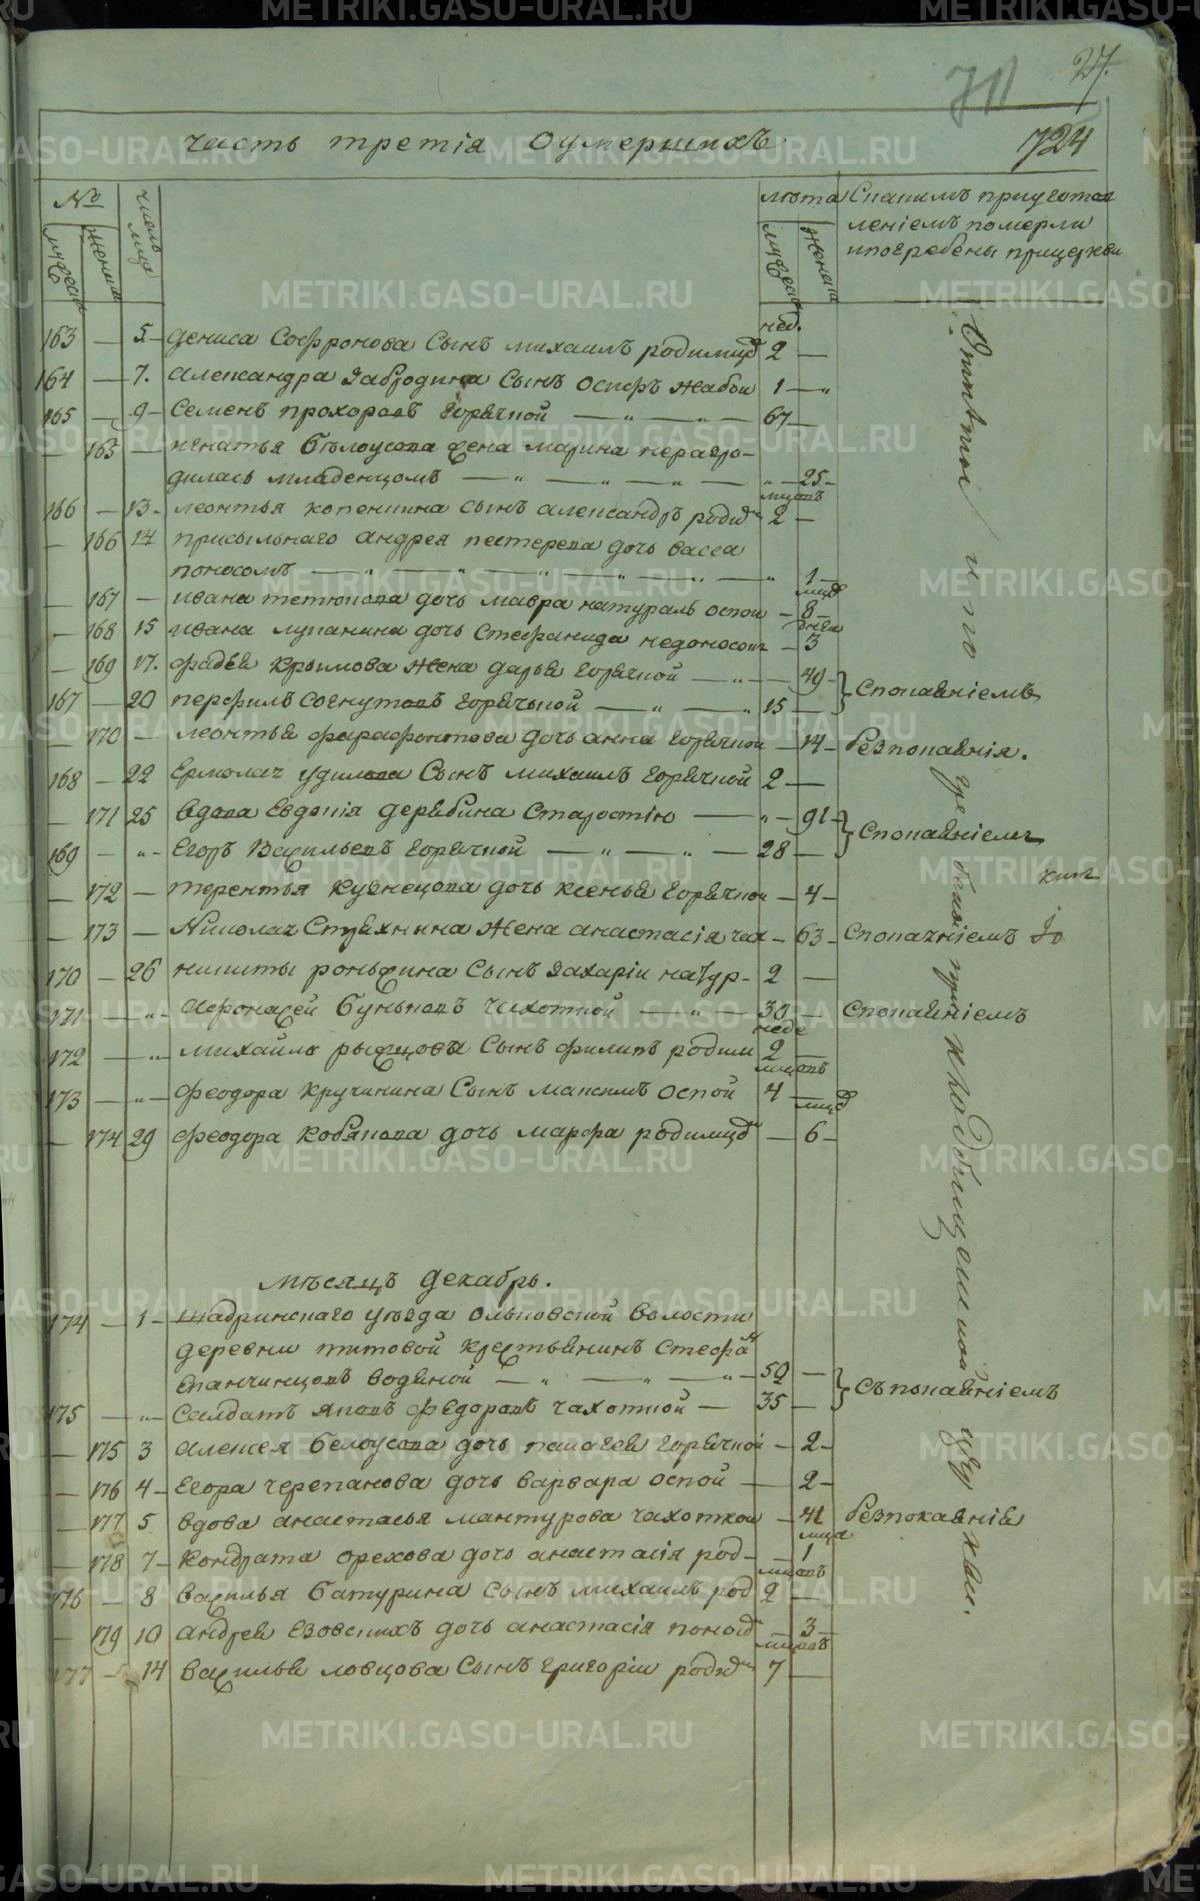 27.
711
724
часть третія оумершихъ
№
число
мужеска
женска
лѣта
мужеска
женска
леніемъ померли
и погребены при церкви
163 — 5 — Дениса Софронова сынъ Михаилъ родимцо нед. 2 —
164 — 7. Александра Забродина сынъ Осипъ жабой 1 —
165 — 9 — Семенъ Прохоровъ горячкой — 67 —
— 165 — Игнатья Бѣлоусова жена Марина неразро-
дилась младенцомъ — 25 —
166 — 13 — Леонтья Копенкина сынъ Александръ родим мцовъ 2 —
— 166 14 присыльнаго Андрея Пестерева дочь Васса
поносомъ — 1 —
— 167 — Ивана Тетюкова дочь Мавра натураль оспой — мцо 8 —
— 168 15 Ивана Лупанина дочь Стефанида недоноском — дней 3
— 169 17. Фадѣя Крымова жена Дарья горячкой — 49 —
167 — 20 Перфилъ Согнутовъ горячькой — 15 — спокаяніемъ
— 170 — Леонтья Фарафонтова дочь Анна горячкой — 14 — безпокаянія.
168 — 22 Ермолая Удилова сынъ Михаилъ горячкой 2 —
— 171 25 вдова Евдокія Дерябина старостію — 91 —
169 — „ — Егоръ Васильевъ горячкой — 28 — спокаяніемъ
— 172 — Терентья Кузнецова дочь Ксенья горячкой — 4 —
— 173 — Николая Стряхнина жена Анастасія чах — 63 — спокаяніемъ
170 — 26 Никиты Роньжина сынъ Захаріи натур — 2 —
171 — „ — Афонасей Буньковъ чихоткой — 30 — спокаяніемъ
172 — „ — Михайлы Рыжцова сынъ Филипъ родим неде 2 —
173 — „ — Феодора Кручинина сынъ Максимъ оспой мцовъ 4 —
— 174 29 Феодора Кобякова дочь Марфа родимцо — мцо 6 —
мѣсяцъ декабрь.
174 — 1 — Шадринскаго уѣзда Ольховской волости
деревни Титовой крестьянинъ Стефа
Епанчинцовъ водяной — 52 —
175 — „ — Салдатъ Яковъ Федоровъ чахоткой — 35 — съ покаяніемъ
— 175 3 Алексея Белоусова дочь Палагея горячкой — 2 —
— 176 4 — Егора Черепанова дочь Варвара оспой — 2 —
— 177 5 вдова Анастасья Мантурова чахоткой — 41 безпокаянія
— 178 7 — Кондрата Орехова дочь Анастасія род — мца 1
176 — 8 Василья Батурина сынъ Михаилъ род мцовъ 2 —
— 179 10 Андрея Езовскихъ дочь Анастасія — 3 —
177 — 14 Василья Ловцова сынъ Григоріи родим мцовъ 7 —
и по гребены при кладбищенской церкви.